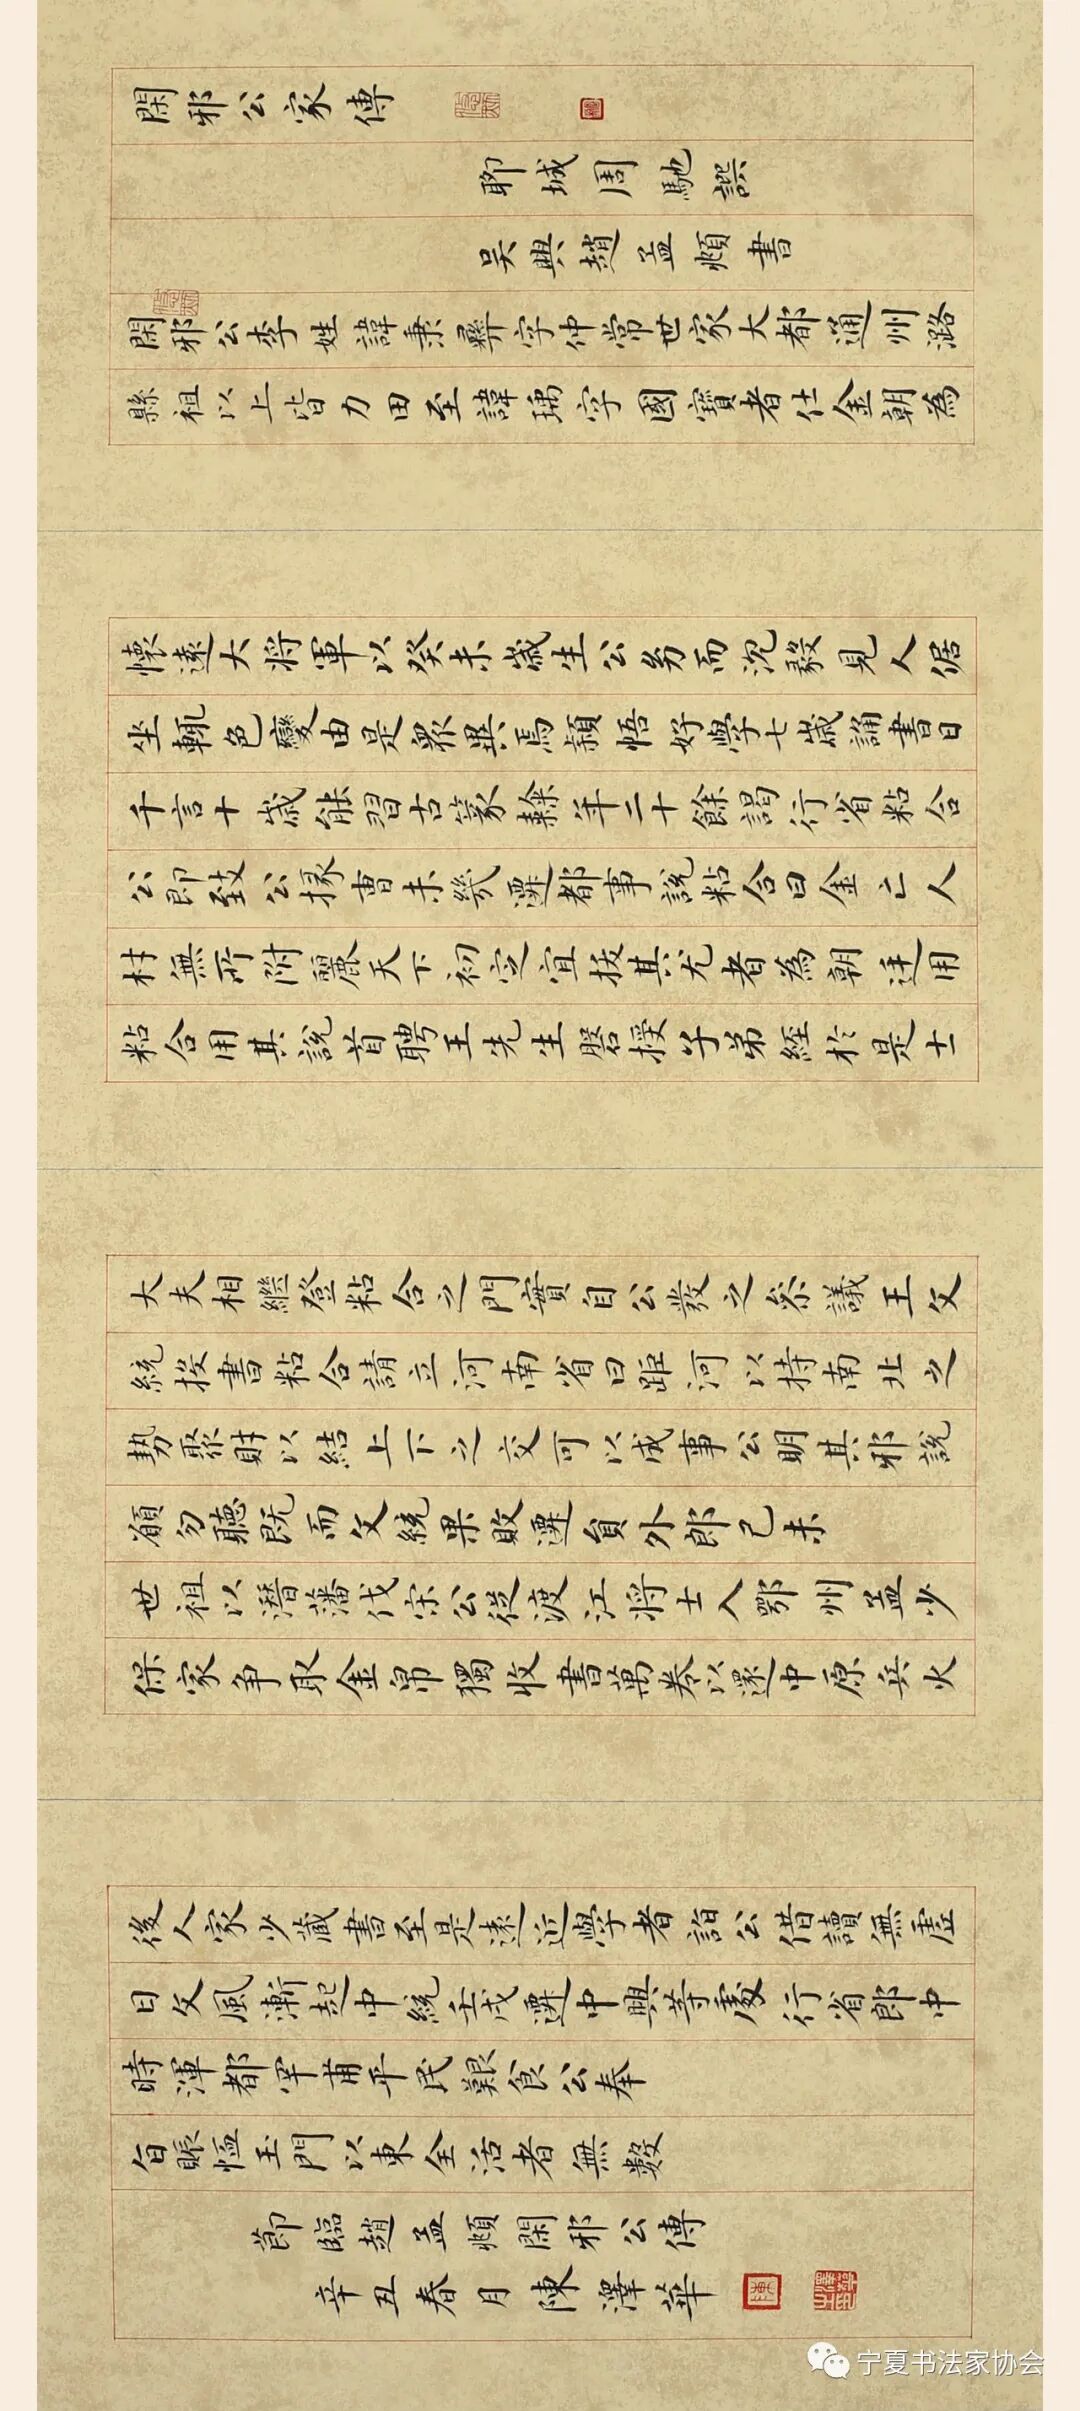 閑邪公家傳
聊城周馳譔
吴興趙孟頫書
閑邪公李姓諱秉彝字仲常世家大都通州潞
縣祖以上皆力田至諱瑀字國寶者仕金朝為
懷遠大将軍以癸未歲生公㓜而沉毅見人倨
坐輒色變由是衆異焉穎悟好學七歲誦書日
千言十歲能習古篆隷年二十餘謁行省粘合
公即致公掾曹未幾遷都事說粘合曰金亡人
材無所附麗天下初定宜拔其尤者為朝廷用
粘合用其說首聘王先生磐授子弟經於是士
大夫相繼登粘合之門實自公發之叅議王文
統投書粘合請立河南省曰距河以持南北之
勢聚財以結上下之交可以成事公明其邪說
願勿聽既而文統果敗遷負外郎己未
世祖以潛藩伐宋公從渡江将士入鄂州孟少
保家争取金帛獨收書萬卷以還中原兵火
後人家少藏書至是遠近學者詣公借讀無虚
日文風漸起中統壬戌遷中興等處行省郎中
時渾都罕甫平民艱食公奉
旨賑恤玉門以東全活者無數
節臨趙孟頫閑邪公傳
辛丑春月陳澤華
宁夏书法家协会